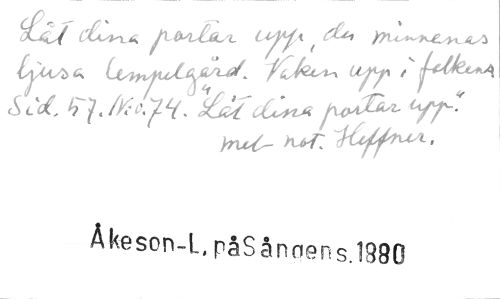 Låt dina portar upp, du minnenas
ljusa tempelgård. Vaken upp i folkens
Sid. 57. N:o. 74. "Låt dina portar upp".
mel- not. Heffner.
Åkeson-L. påSångens. 1880